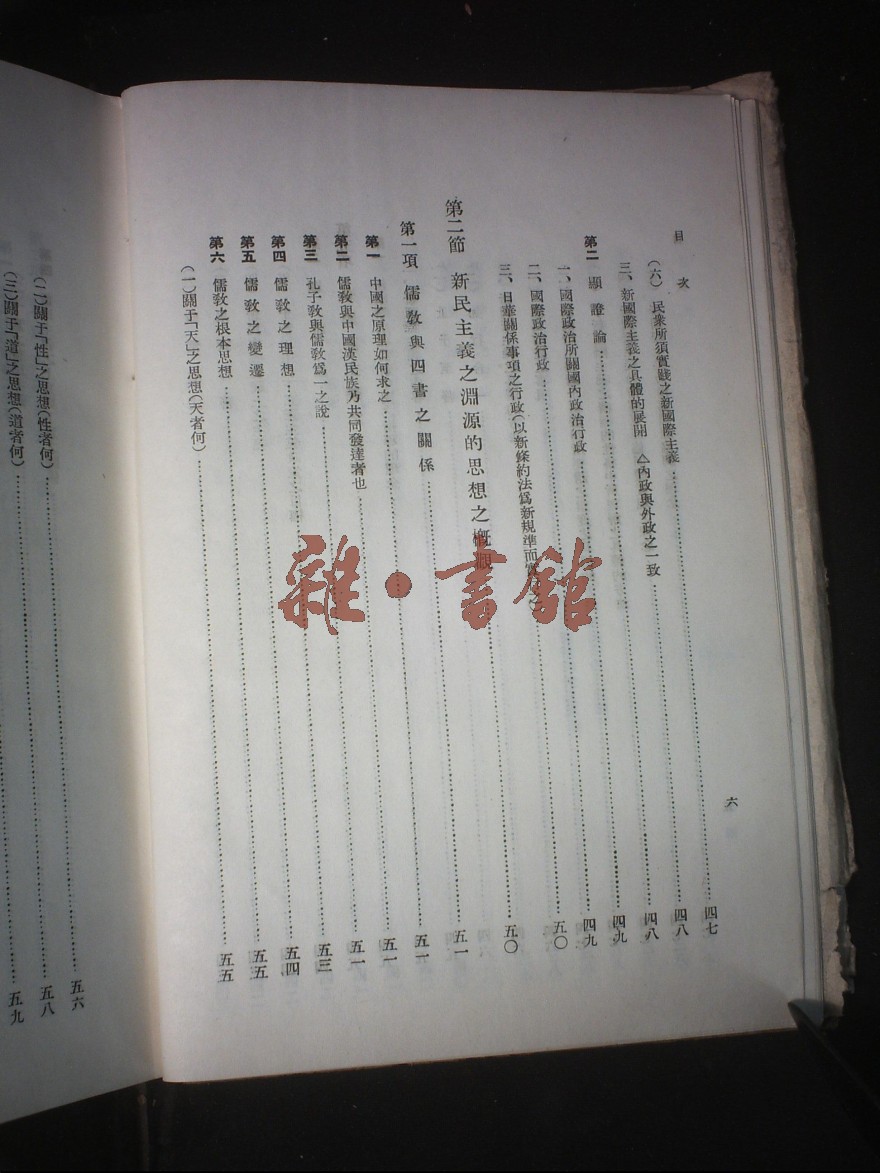 目次
六
(六) 民衆所須實踐之新國際主義……四七
三、新國際主義之具體的展開 △內政與外政之一致……四八
第二 顯證論……四八
一、國際政治所關國內政治行政……四九
二、國際政治行政……四九
三、日華關係事項之行政(以新条約法爲新規準而……五〇
第二節 新民主義之淵源的思想之概觀……五〇
第一項 儒敎與四書之關係……五一
第一 中國之原理如何求之……五一
第二 儒敎與中國漢民族乃共同發達者也……五一
第三 孔子敎與儒敎爲一之說……五一
第四 儒敎之理想……五三
第五 儒敎之變遷……五四
第六 儒敎之根本思想……五五
(一)關于「天」之思想(天者何)……五五
(二)關于「性」之思想(性者何)……五六
(三)關于「道」之思想(道者何)……五八
五九
雜·書館